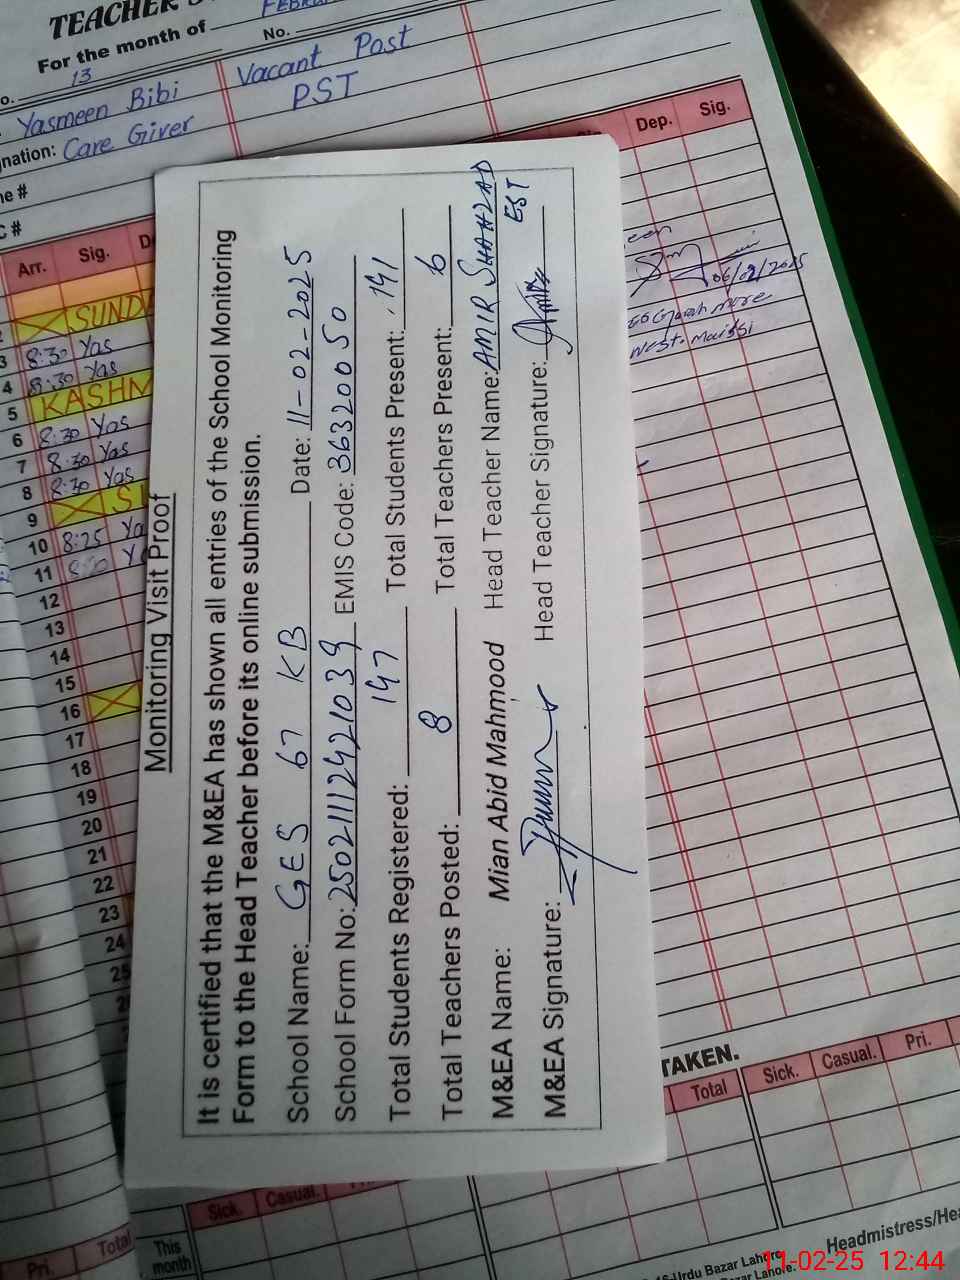 TEACHER
For the month of
No.
13
Yasmeen Bibi
Vacant Post
nation: Care Giver
PST
Arr. Sig. Dep. Sig.
SUND
3 8:30 Yas
4 8:30 Yas
5 KASHM
6 8:30 Yas
7 8:30 Yas
8 8:30 Yas
9
10 8:25 Ya
11
12
13
14
15
16
17
18
19
20
21
22
23
24
25
06/02/2025
Monitoring Visit Proof
It is certified that the M&EA has shown all entries of the School Monitoring
Form to the Head Teacher before its online submission.
School Name: GES 67 KB Date: 11-02-2025
School Form No: 25021112421039 EMIS Code: 36320050
Total Students Registered: 147 Total Students Present: 141
Total Teachers Posted: 8 Total Teachers Present: 6
M&EA Name: Mian Abid Mahmood Head Teacher Name: AMIR SHAHZAD
EST
M&EA Signature: Head Teacher Signature:
TAKEN.
Total Sick. Casual. Pri.
Sick. Casual.
Pri. Total
This
month
Urdu Bazar Lahore
Headmistress/Hea
11-02-25 12:44